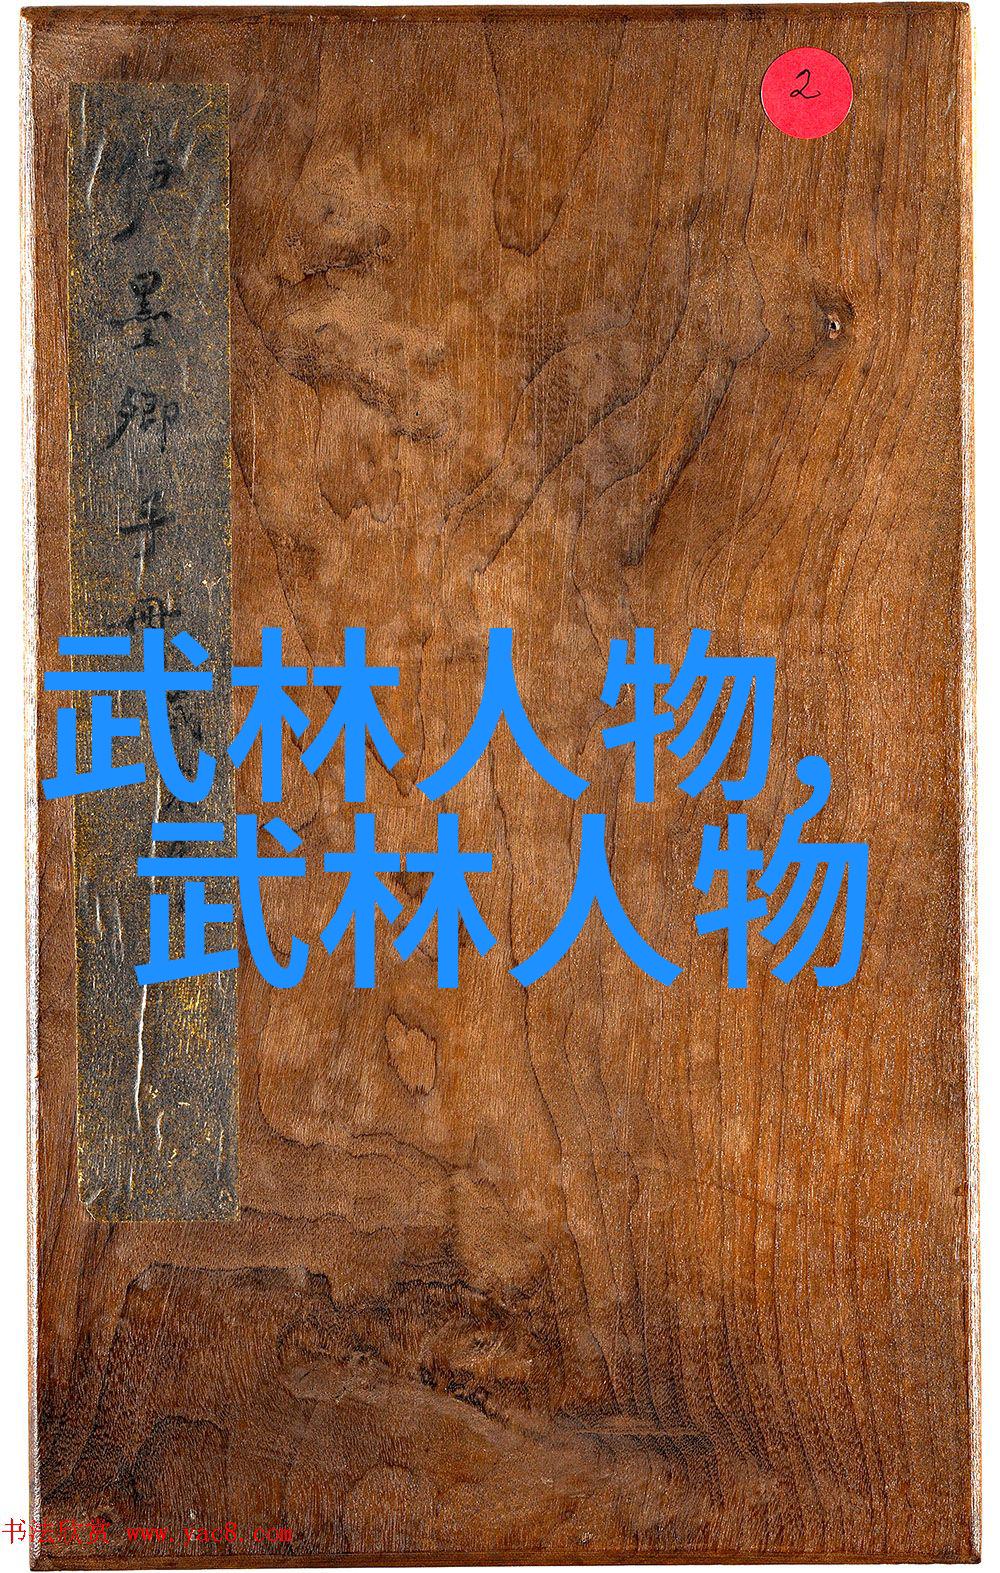 2
墨卿手冊
武林人物,
武林人物
书法欣赏 www.yac8.com